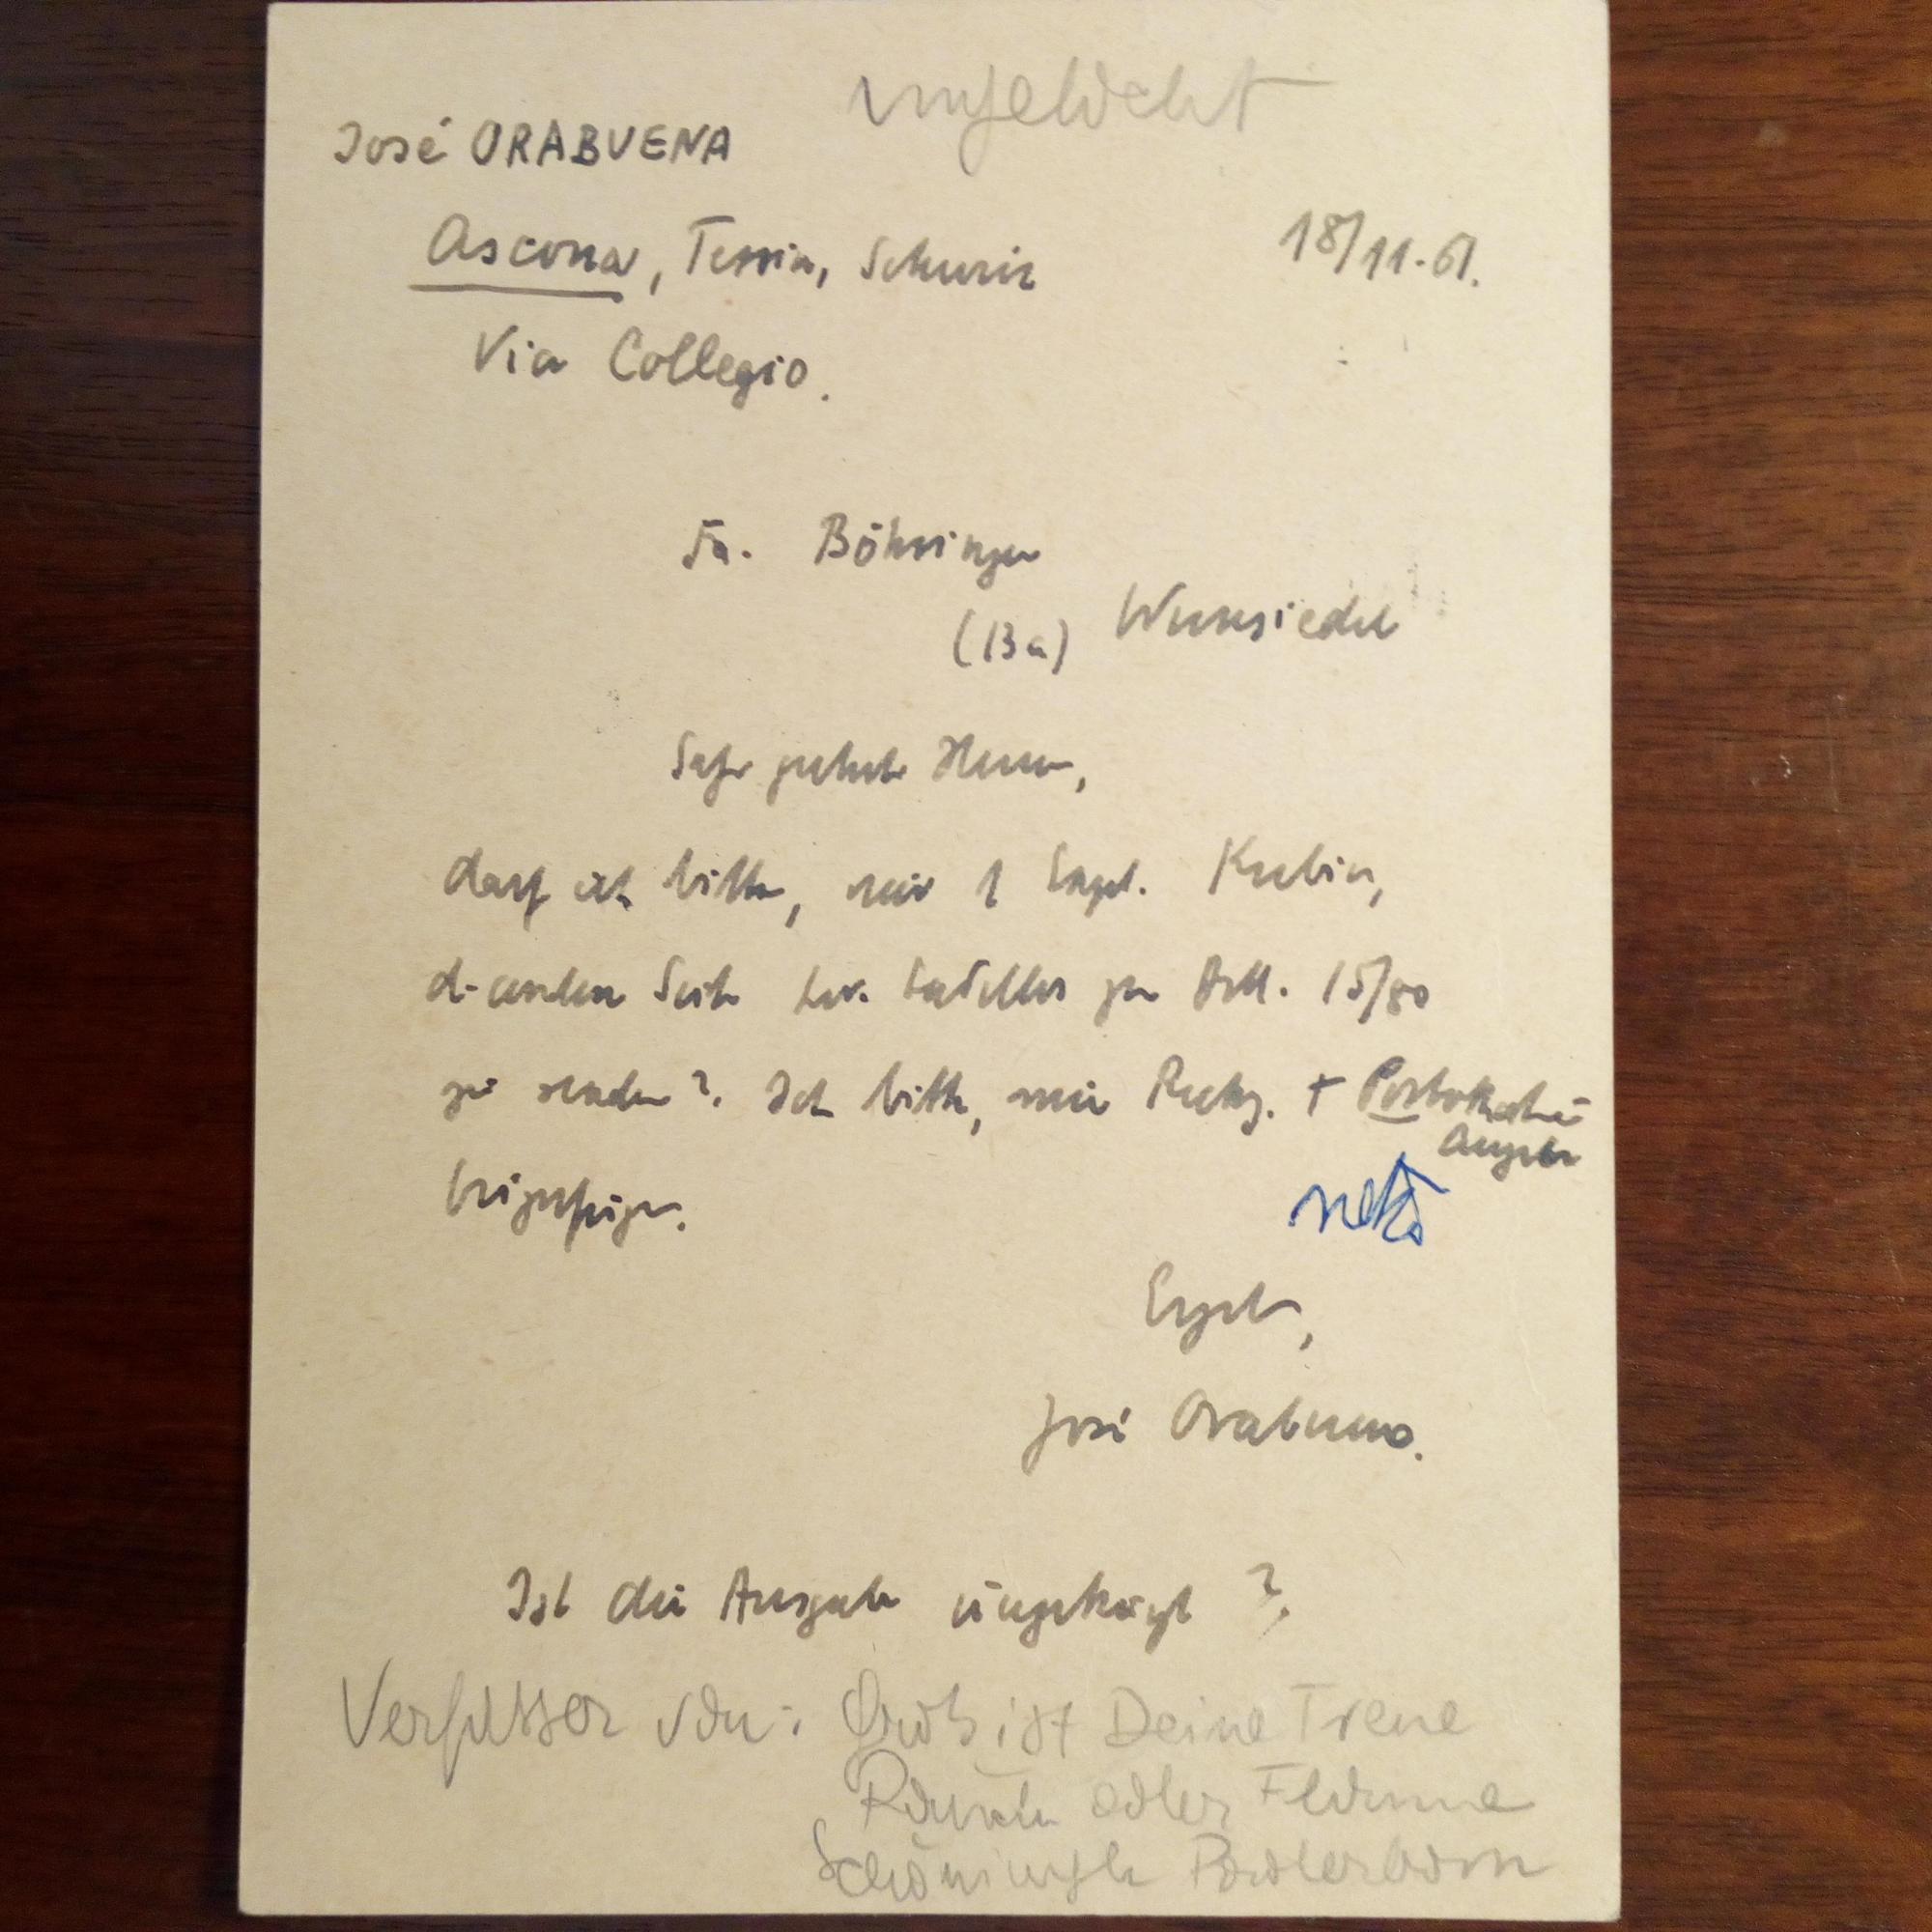 ungelocht
José ORABUENA
Ascona, Tessin, Schweiz 18/11.61.
Via Collegio.
Fa. Böhringer
(13a) Wunsiedel
Sehr geehrte Herren,
darf ich bitten, mir 1 Expl. Kubin,
d. andere Seite zu DM. 15/80
zu senden? Ich bitte, mir Rechg. + Postscheck
Angabe
beizufügen.
netto
Ergeb.,
José Orabuena.
Ist die Ausgabe ungekürzt?
Verfasser von: Groß ist Deine Treue
Rauch edler Flamme
Schöningh Paderborn